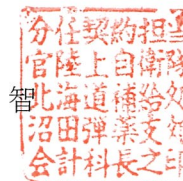 分任契約担当
官陸上自衛隊
智北海道補給処
沼田弾薬支処
会計科長之印